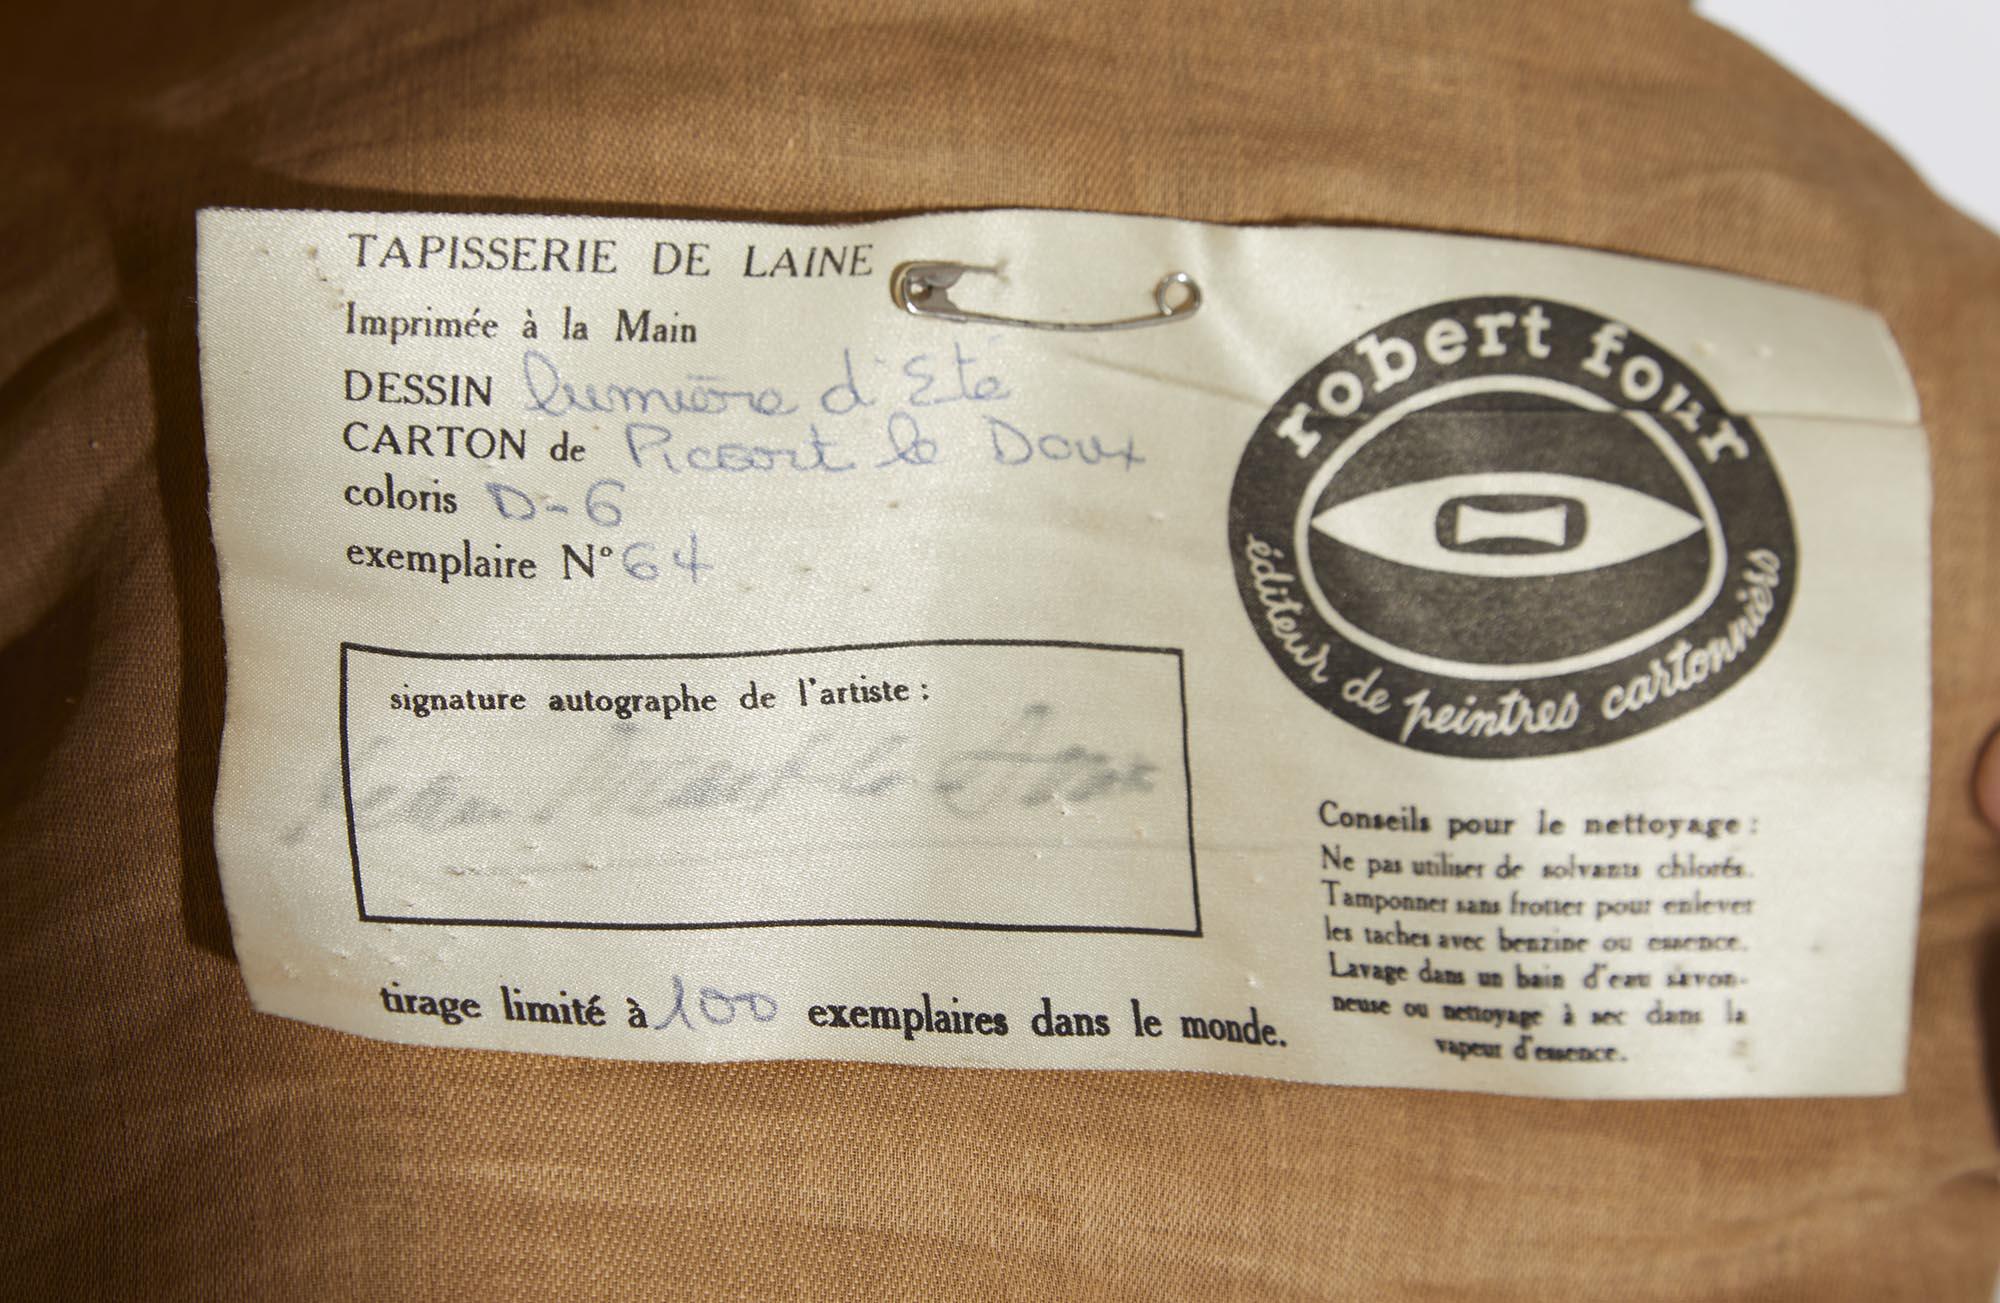 TAPISSERIE DE LAINE
Imprimée à la Main
DESSIN lumière d'Eté
CARTON de Piceart le Doux
coloris D-6
exemplaire N° 64
signature autographe de l'artiste :
Jean Picart le Doux
tirage limité à 100 exemplaires dans le monde.
robert four
éditeur de peintres cartonniers
Conseils pour le nettoyage :
Ne pas utiliser de solvants chlorés.
Tamponner sans frotter pour enlever
les taches avec benzine ou essence.
Lavage dans un bain d'eau savon-
neuse ou nettoyage à sec dans la
vapeur d'essence.